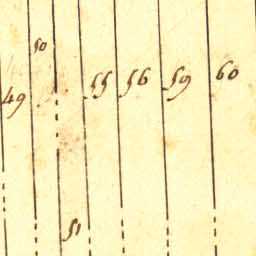 50
49 55 56 59 60
51